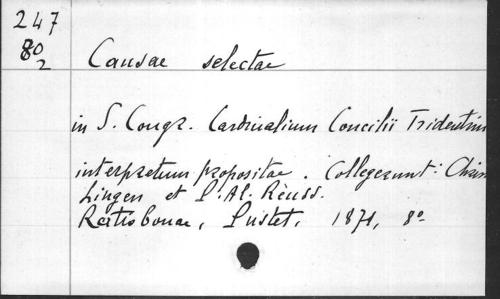 247
80
2
Causae selectae
in S. Congr. Cardinalium Concilii Tridentin
interpretum propositae. Collegerunt: Chr
Lingen et P. Al. Reuss.
Ratisbonae, Pustet, 1871, 8°